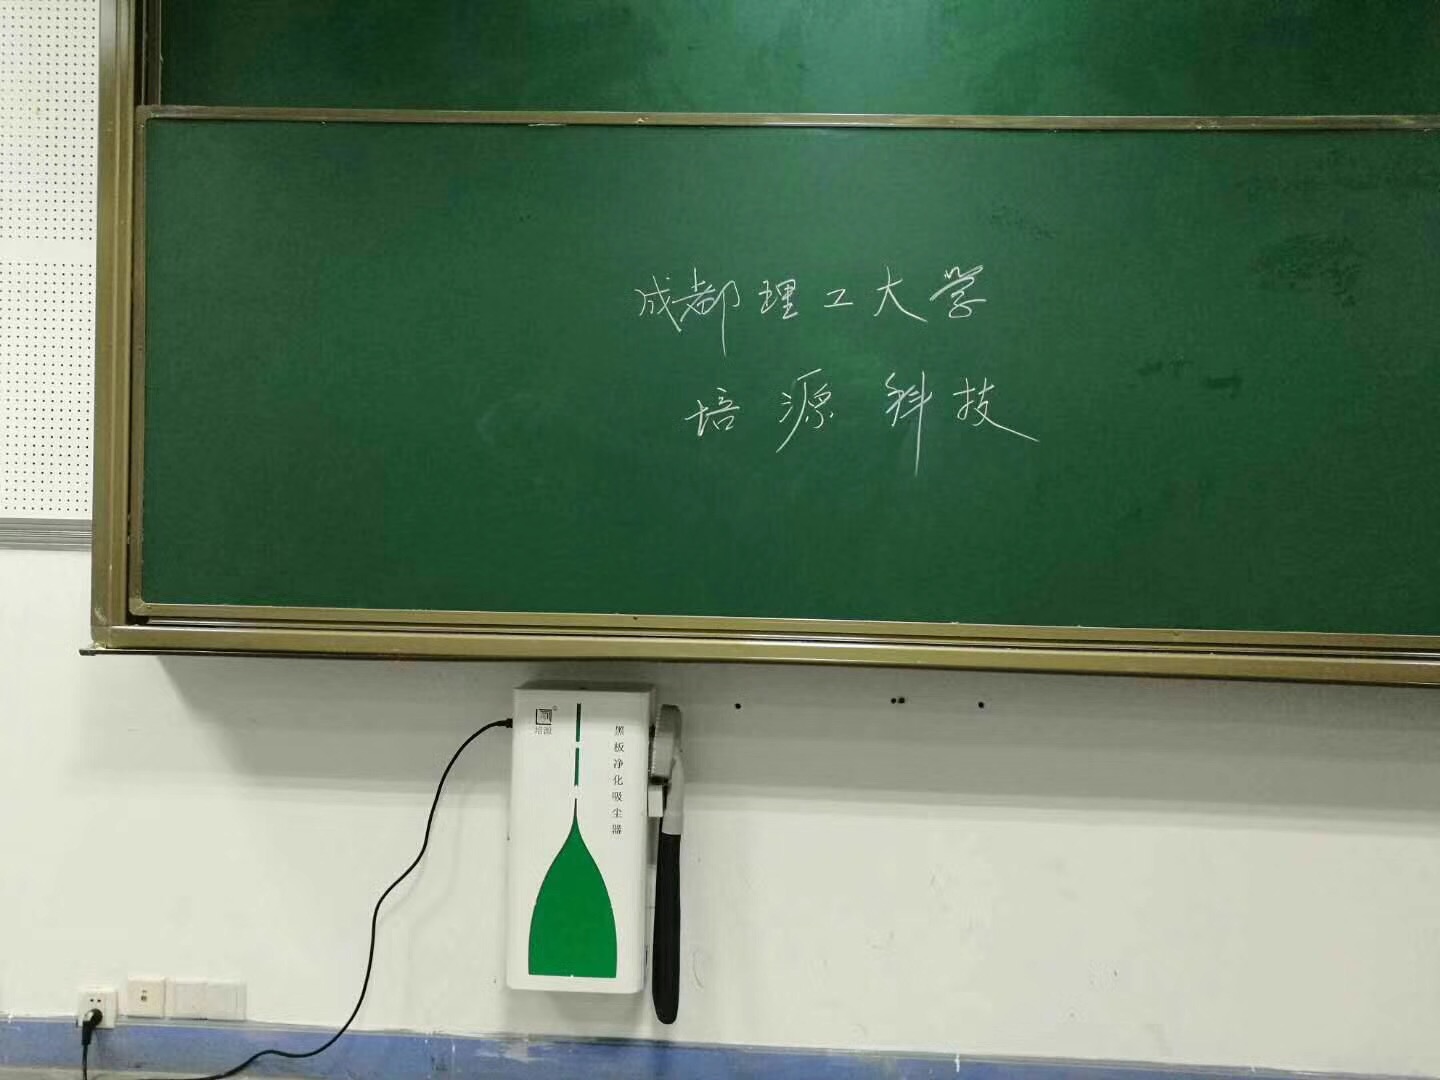 成都理工大学
培源科技
培源
黑板净化吸尘器